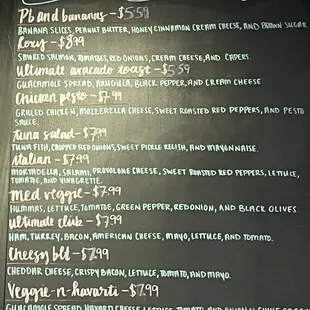 Pb and bananas - $5.59
BANANA SLICES, PEANUT BUTTER, HONEY CINNAMON CREAM CHEESE, AND BROWN SUGAR
Roxy - $8.99
SMOKED SALMON, TOMATOES, RED ONIONS, CREAM CHEESE, AND CAPERS.
Ultimate avacado toast - $5.59
GUACAMOLE SPREAD, ARUGULA, BLACK PEPPER, AND CREAM CHEESE.
Chicken pesto - $7.99
GRILLED CHICKEN, MOZZERELLA CHEESE, SWEET ROASTED RED PEPPERS, AND PESTO
SAUCE.
tuna salad - $7.99
TUNA FISH, CHOPPED RED ONIONS, SWEET PICKLE RELISH, AND MAYONNAISE.
italian - $7.99
MORTADELLA, SALAMI, PROVOLONE CHEESE, SWEET ROASTED RED PEPPERS, LETTUCE,
TOMATOE, AND VINAGRETTE.
Med veggie - $7.99
HUMMAS, LETTUCE, TOMATOE, GREEN PEPPER, RED ONION, AND BLACK OLIVES.
ultimate club - $7.99
HAM, TURKEY, BACON, AMERICAN CHEESE, MAYO, LETTUCE, AND TOMATO.
Cheesy blt - $7.99
CHEDDAR CHEESE, CRISPY BACON, LETTUCE, TOMATO, AND MAYO.
Veggie-n-havarti - $7.99
GUACAMOLE SPREAD, HAVARTI CHEESE, LETTUCE, TOMATO, AND ONION